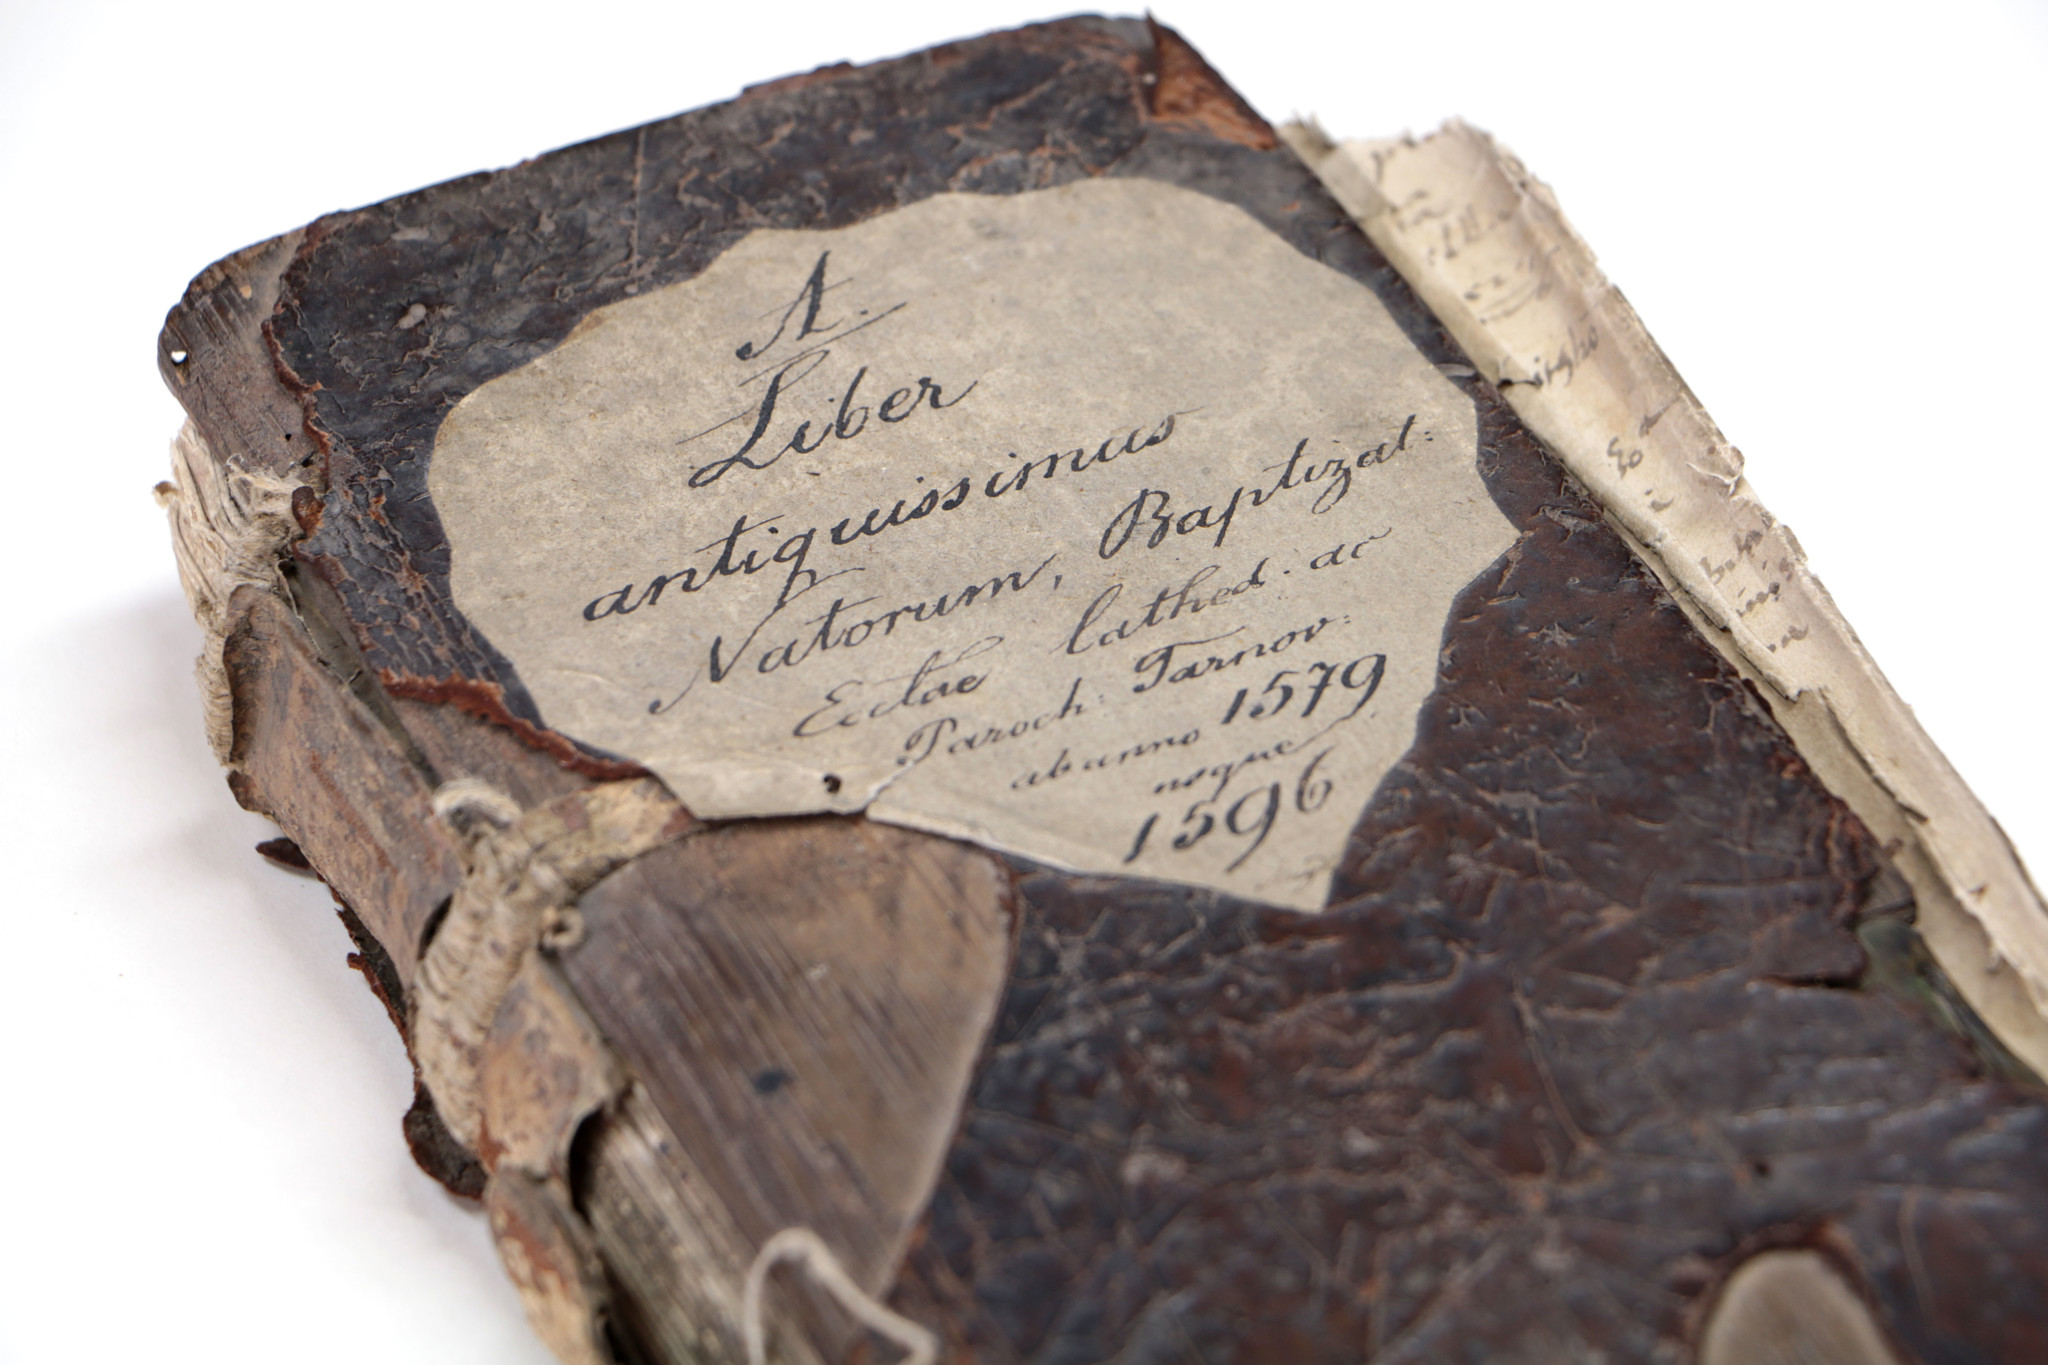 A.
Liber
antiquissimus
Natorum, Baptizat:
Ecclae Cathed: ac
Paroch: Tarnov:
ab anno 1579
usque
1596